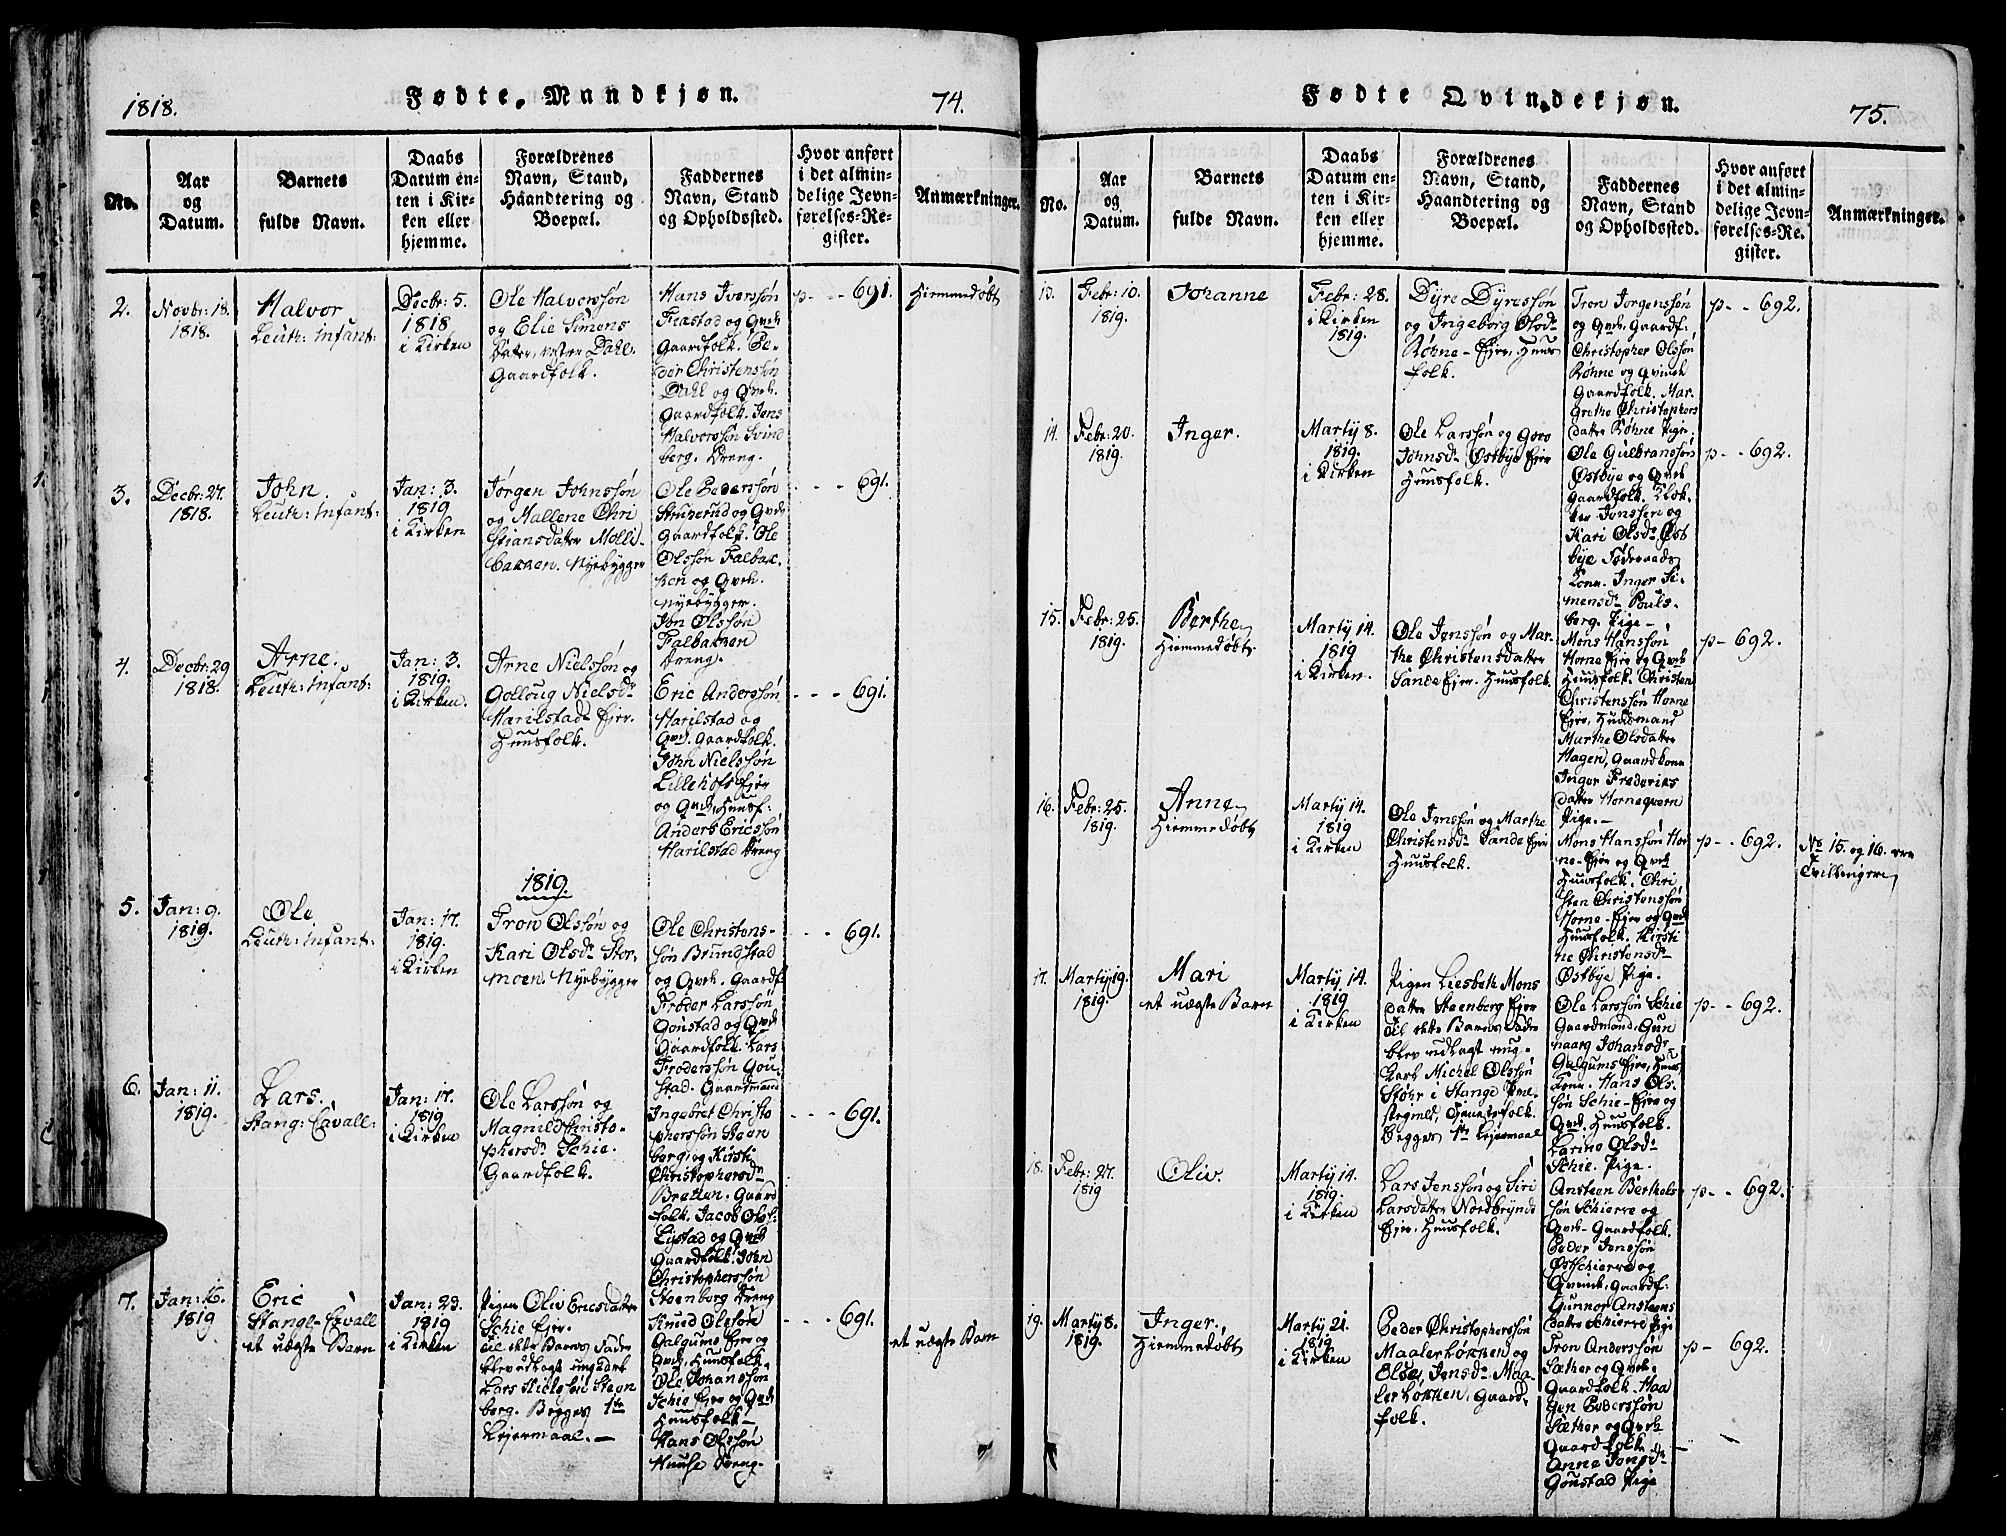 1818.
Fødte Mandkjøn.
74.
No.
Aar
og
Datum.
Barnets
fulde Navn.
Daabs
Datum en-
ten i Kir-
ken eller
hjemme.
Forældrenes
Navn, Stand,
Haandtering og
Boepæl.
Faddernes
Navn, Stand
og Opholdssted.
Hvor anført
i det almin-
delige Jevn-
førelses-Re-
gister.
Anmærkninger.
2.
Novbr: 18.
1818.
Halvor
Leuth: Infant:
Decbr: 5.
1818
i Kirken
Ole Halvorssøn
og Elie Simens
Datter, vestre Dahl
Gaardfolk.
Hans Iverssøn
Frastad og Qvch
Gaardfolk. Pe-
der Christenssøn
Dahl og Qvch.
Gaardfolk. Jens
Halvorssøn Svind
berg. Dreng.
p - - 691.
Hiemmedøbt
3.
Decbr: 27.
1818.
John.
Leuth: Infant:
Jan: 3.
1819
i Kirken
Jørgen Johnssøn
og Mallene Chri
stiansdatter Molli-
bakken. Nyebygger
Ole Pederssøn
Struperud og Qvch
Gaardfolk. Ole
Olssøn Falbak-
ken og Qvch.
Nyebygger.
Jon Olssøn
Falbakken
Dreng.
- - - 691.
4.
Decbr: 29
1818.
Arne.
Leuth: Infant:
Jan: 3.
1819.
i Kirken.
Arne Nielssøn og
Golloug Nielsdr
Harilstad Ejer.
Huusfolk.
Eric Anderssøn
Harilstad og
Qvch. Gaardfolk.
John Nielssøn
Lillehoff Ejer
og Qvch, Huusf:
Anders Ericssøn
Harilstad Dreng
- - - 691.
1819.
5.
Jan: 9.
1819.
Ole
Leuth: Infant:
Jan: 17.
1819.
i Kirken
Tron Olssøn og
Kari Olsdr Stor-
moen. Nyebygger
Ole Christens-
søn Brundstad
og Qvch. Gaardf
Frøder Larssøn
Goustad og Qvch
Gaardfolk. Lars
Frøderssøn Gou-
stad. Gaardmand
- - - 691.
6.
Jan: 11.
1819.
Lars.
Stang: Cavall:
Jan: 17.
1819
i Kirken
Ole Larssøn og
Magnild Christo-
phersdr Schie.
Gaardfolk.
Ingebret Christo
pherssøn Steen
berg, og Kirsti
Christophersdr
Bratten. Gaard
folk. Jacob Olss:
Lystad og Qvch
Gaardfolk. John
Christopherssøn
Steenberg Dreng
- - - 691.
7.
Jan: 16.
1819
Eric
Stange-Cavall
et uægte Barn
Jan: 23.
1819
i Kirken
Pigen Oliv Ericsdatter
Schie Ejer.
Til dette Barns Fader
blev udlagt ungkarl
Lars Nielssøn Steen
berg. Begges 1ste
Lejermaal. —
Knud Olssøn
Galgums Ejer og
Qvch. Huusfolk.
Ole Johanssøn
Schie Ejer og Qvch
Huusfolk —
Hans Olssøn
Huuse Dreng.
- - - 691.
et uægte Barn
Fødte Qvindekjøn.
75.
No.
Aar
og
Datum.
Barnets
fulde Navn.
Daabs
Datum en-
ten i Kir-
ken eller
hjemme.
Forældrenes
Navn, Stand,
Haandtering og
Boepæl.
Faddernes
Navn, Stand
og Opholdssted.
Hvor anført
i det almin-
delige Jevn-
førelses-Re-
gister.
Anmærkninger.
13.
Febr: 10.
1819.
Johanne
Febr: 28.
i Kirken
1819.
Dyre Dyressøn
og Ingeborg Olsdr
Røhne - Ejer. Huus
folk.
Tron Jørgenssøn
og Qvch. Gaardf:
Christopher Olssøn
Røhne og Qvinde
Gaardfolk. Mar-
grethe Christophers
datter Røhne Pige.
p - - 692.
14.
Febr: 20.
1819.
Inger.
Martij 8.
1819.
i Kirken
Ole Larssøn og Goro
Johnsdr Østbye Ejer
Huusfolk.
Ole Gulbranssøn
Østbye og Qvch
Gaardfolk. Klok-
ker Jenssen og
Kari Olsdr Øst
bye Føderaads
Kone. Inger Si-
mensdr Pouls-
berg. Pige -
p - - 692.
15.
Febr: 25.
1819.
Berthe
Hiemmedøbt
Martij 14.
1819
i Kirken.
Ole Jenssøn og Mar-
the Christensdatter
Sande Ejer. Huusfolk.
Mons Hanssøn
Horne Ejer og Qvch
Huusfolk. Christen
Christenssøn Horne
Ejer, Huusmand
Marthe Olsdatter
Hagen, Gaardkone
Inger Frederiks
datter Hornequern
Pige. —
p - 692.
16.
Febr: 25.
1819.
Anne
Hiemmedøbt
Martij 14.
1819
i Kirken
Ole Jenssøn og Marthe
Christensdr Sande Ejer
Huusfolk.
Mons Hanssøn Hor
ne - Ejer og Qvch
Huusfolk. Chri
sten Christenssøn
Horne - Ejer og Qvch
Huusfolk. Kirsti
ne Christensdr
Østbye Pige.
p - - 692.
No 15. og 16. ere
Tvillinger
17.
Martij 9.
1819.
Mari
et uægte Barn
Martij 14.
1819
i Kirken
Pigen Liesbeth Mons
datter Steenberg Ejer
Til dette Barns Fader
blev udlagt ung-
karl Michel Olssøn
Støhr i Stange Præ-
stegield, Tjenestefolk.
Begges 1ste Lejermaal
Ole Larssøn Schie
Gaardmand, Gun
naarg Johansdr
Galgums Ejer, Huus
Kone. Hans Ols-
søn Schie - Ejer og
Qvch. Huusfolk.
Larine Olsdr
Schie. Pige.
p - - 692.
18.
Febr: 27.
1819
Oliv.
Martij 14.
1819.
i Kirken
Lars Jenssøn og Siri
Larsdatter Nordbrynd
Ejer. Huusfolk.
Ansteen Berthels
søn Schierre og
Qvch - Gaardfolk.
Peder Jenssøn
Østschierre og
Qvinde, Gaardf:
Gunnor Ansteens
datter Schierre Pige
p - - 692.
19.
Martij 8.
1819.
Inger.
Hiemmedøbt
Martij 21.
1819
i Kirken
Peder Christopherssøn
Maalerløkken og
Olse Jensdr Maa-
lerløkken, Gaard-
folk.
Tron Anderssøn
Sæther og Qvch.
Gaardfolk. Haa
gen Pederssøn
Sæther og Qvch
Gaardfolk. —
Anne Jonsdr
Goustad Pige
p - 692.